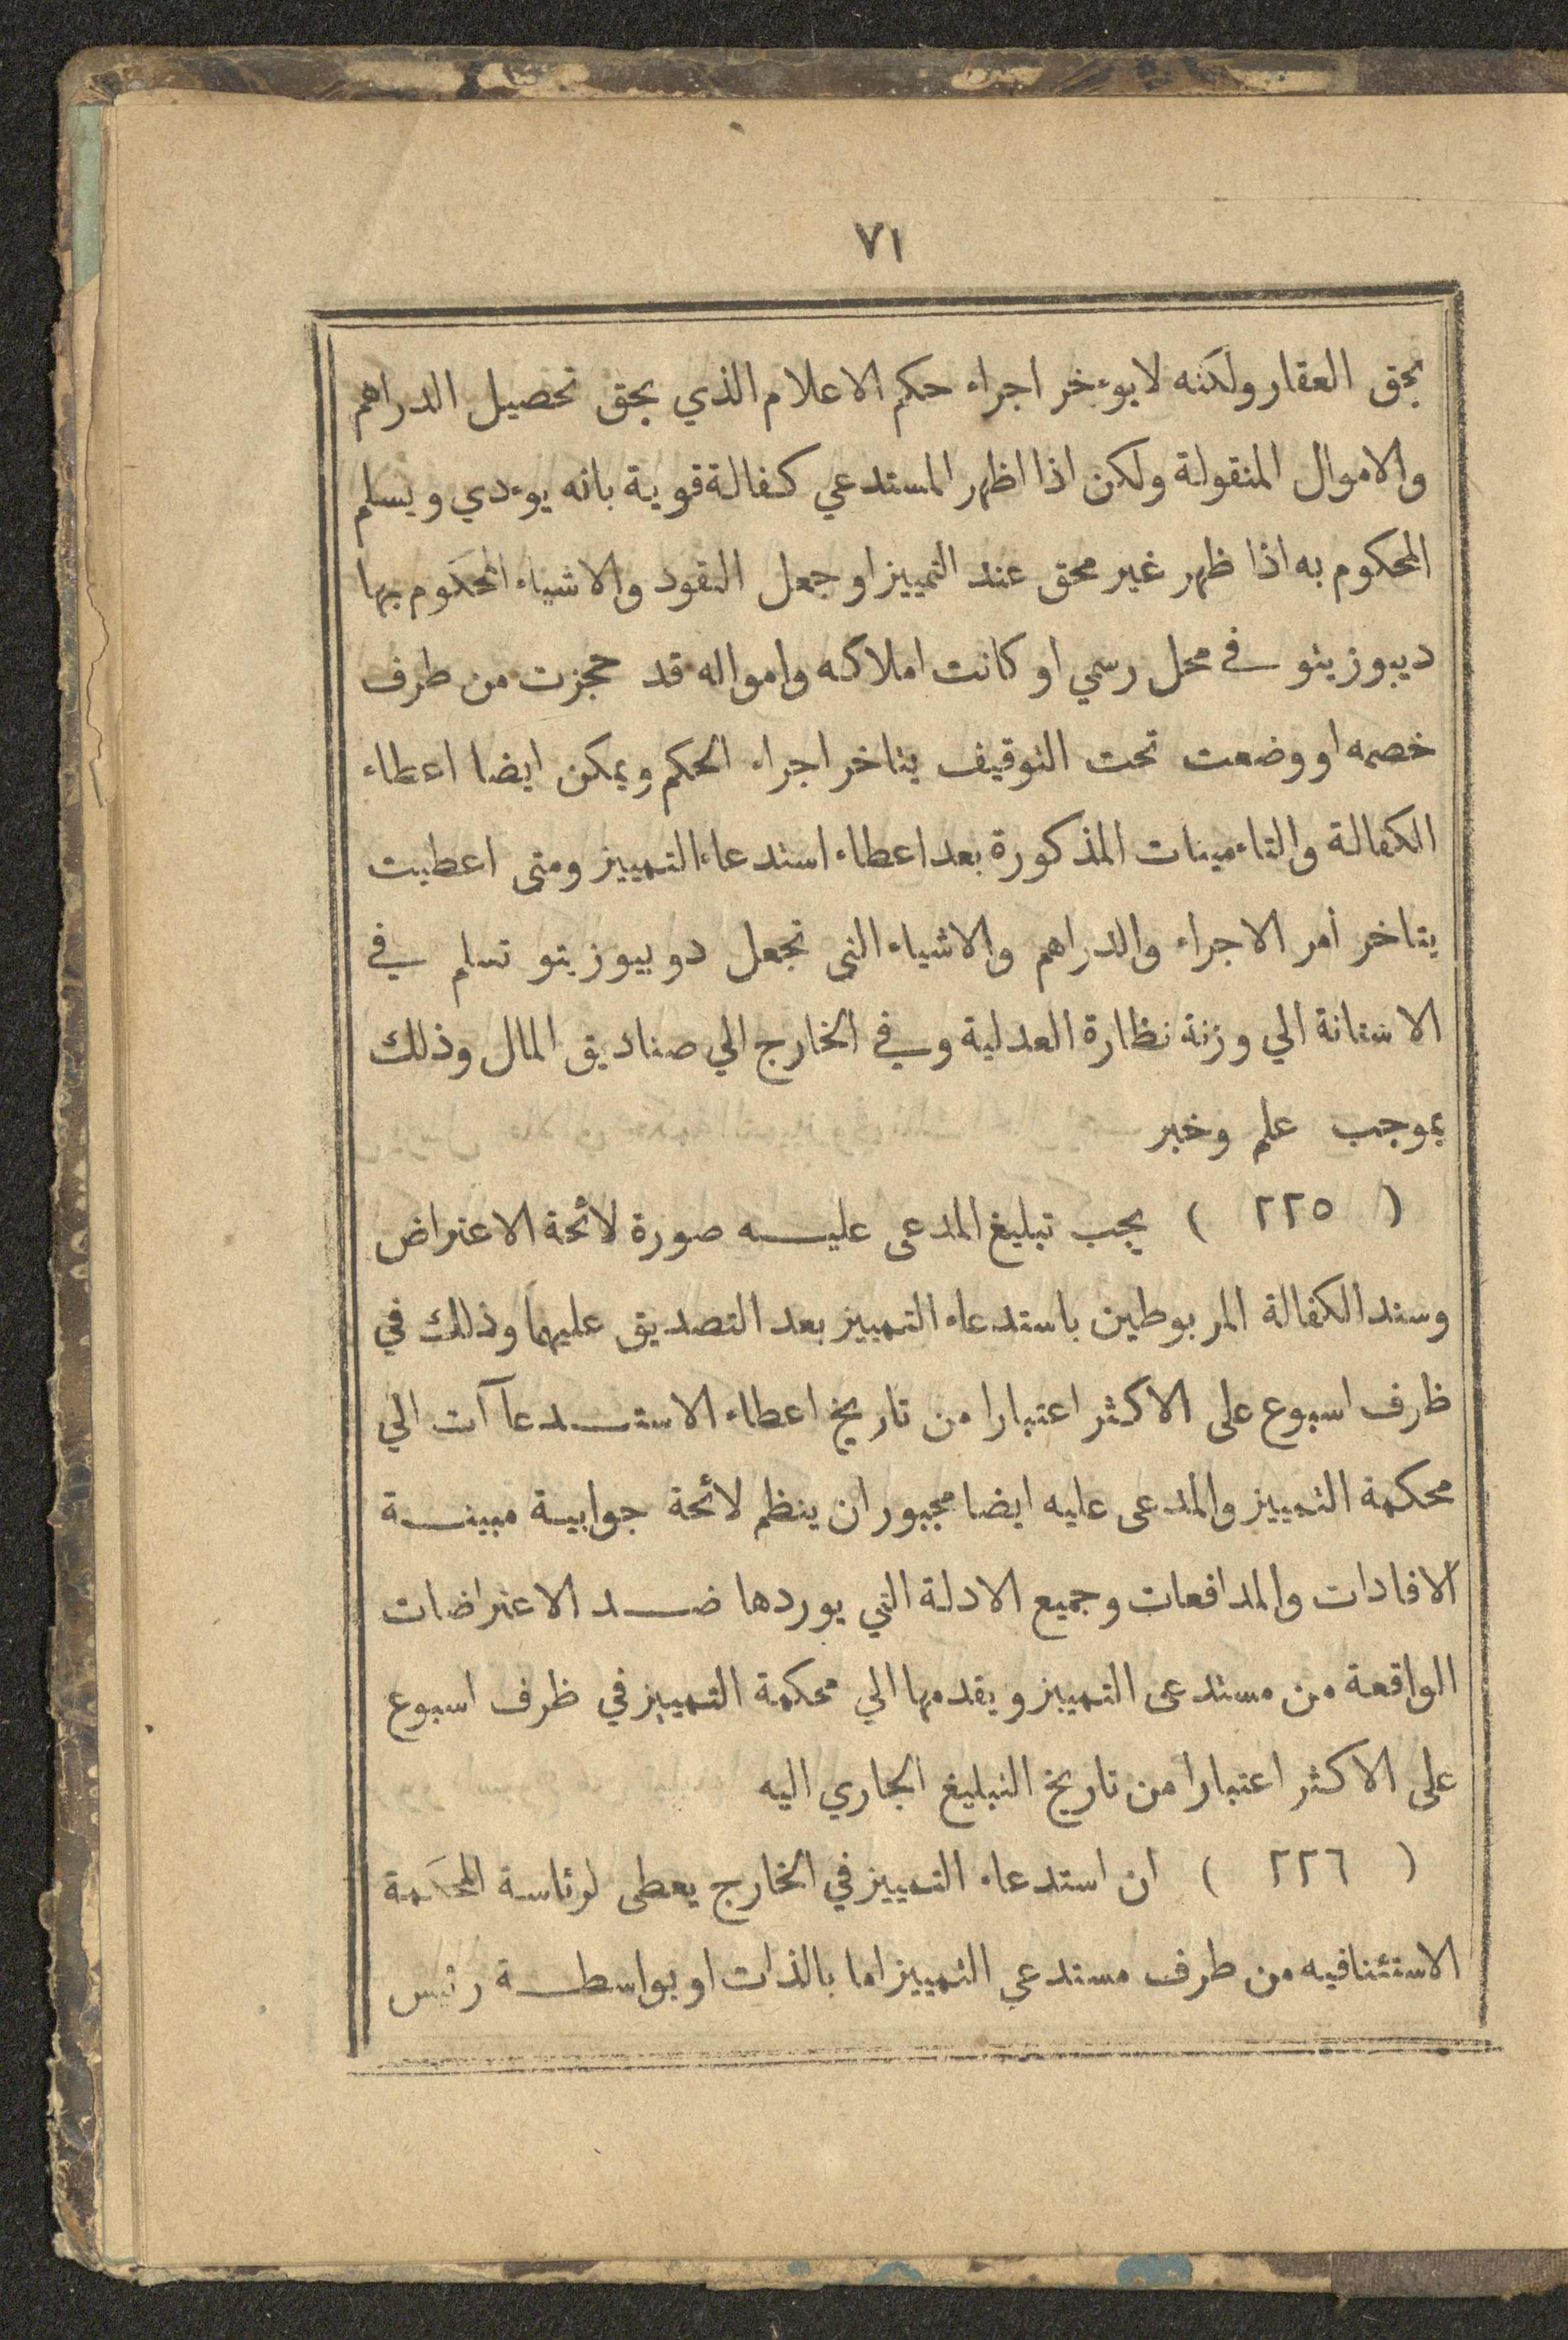 ٧١
بحق العقار ولكنه لا يوءخر اجراء حكم الاعلام الذي بحق تحصيل الدراهم
والاموال المنقولة ولكن اذا اظهر المستدعي كفالة قوية بانه يوءدي ويسلم
المحكوم به اذا ظهر غير محق عند التمييز او جعل النقود والاشياء المحكوم بها
ديبوزيتو في محل رسمي او كانت املاكه وامواله قد حجزت من طرف
خصمه او وضعت تحت التوقيف يتاخر اجراء الحكم ويمكن ايضا اعطاء
الكفالة والتاءمينات المذكورة بعد اعطاء استدعاء التمييز ومتى اعطيت
يتاخر أمر الاجراء والدراهم والاشياء التى تجعل دوبيوزيتو تسلم في
الاستانة الي وزنة نظارة العدلية وفي الخارج الي صناديق المال وذلك
بموجب علم وخبر
( ٢٢٥ ) يجب تبليغ المدعى عليه صورة لائحة الاعتراض
وسند الكفالة المربوطين باستدعاء التمييز بعد التصديق عليهما وذلك في
ظرف اسبوع على الاكثر اعتبارا من تاريخ اعطاء الاستدعاآت الي
محكمة التمييز والمدعى عليه ايضا مجبور ان ينظم لائحة جوابية مبينة
الافادات والمدافعات وجميع الادلة التي يوردها ضد الاعتراضات
الواقعة من مستدعى التمييز ويقدمها الي محكمة التمييز في ظرف اسبوع
على الاكثر اعتبارا من تاريخ التبليغ الجاري اليه
( ٢٢٦ ) ان استدعاء التمييز في الخارج يعطى لرئاسة المحكمة
الاستئنافيه من طرف مستدعي التمييز اما بالذات او بواسطة رئيس